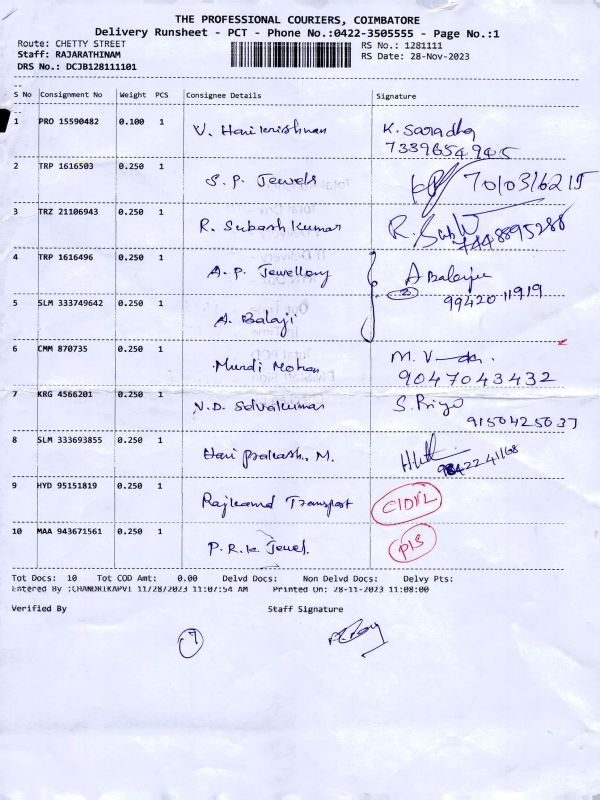 THE PROFESSIONAL COURIERS, COIMBATORE
Delivery Runsheet - PCT - Phone No.:0422-3505555 - Page No.:1
Route: CHETTY STREET
RS No.: 1281111
Staff: RAJARATHINAM
RS Date: 28-Nov-2023
DRS No.: DCJB128111101
S No Consignment No Weight PCS Consignee Details Signature
1 PRO 15590482 0.100 1 V. Harikrishnan K. Saradha
7339654945
2 TRP 1616503 0.250 1 S. P. Jewels 7010316215
3 TRZ 21106943 0.250 1 R. Subash Kumar R.
7448895288
4 TRP 1616496 0.250 1 A. P. Jewellery A Balaji
2 99420 11919
5 SLM 333749642 0.250 1 A. Balaji
6 CMM 870735 0.250 1 Mohan M. V
9047043432
7 KRG 4566201 0.250 1 N.D. Selvakumar S. Priya
9150425037
8 SLM 333693855 0.250 1 Hari prakash. M.
9 HYD 95151819 0.250 1 Transport
10 MAA 943671561 0.250 1 P. R. K. Jewel.
Tot Docs: 10 Tot COD Amt: 0.00 Delvd Docs: Non Delvd Docs: Delvy Pts:
Entered By :CHANDRIKAPVI 11/28/2023 11:07:54 AM Printed On: 28-11-2023 11:08:00
Verified By Staff Signature
7